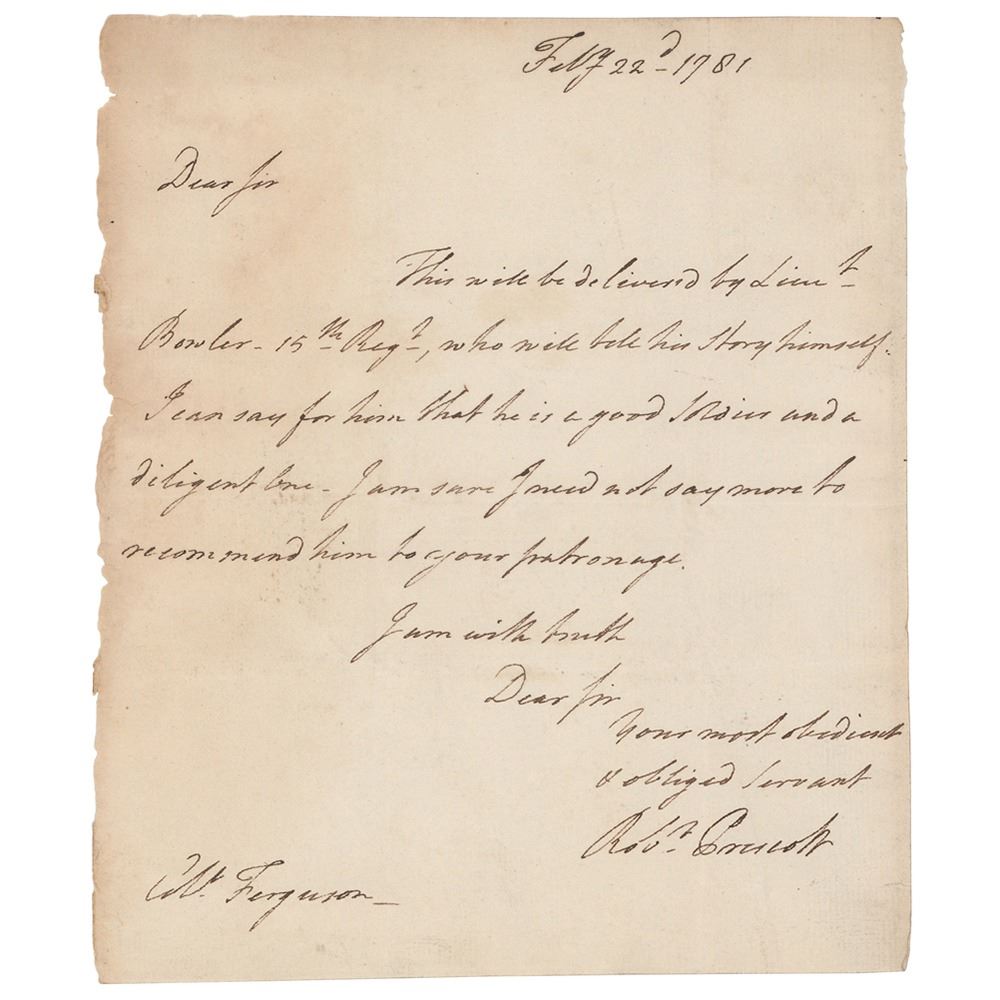 Feby 22d - 1781
Dear Sir
This will be delivered by Lieut
Bowler - 15th Regt, who will tell his Story himself.
I can say for him that he is a good Soldier and a
diligent One - I am sure I need not say more to
recommend him to your patronage.
I am with truth
Dear Sir
Your most obedient
& obliged Servant
Robt Prescott
Coll. Ferguson -